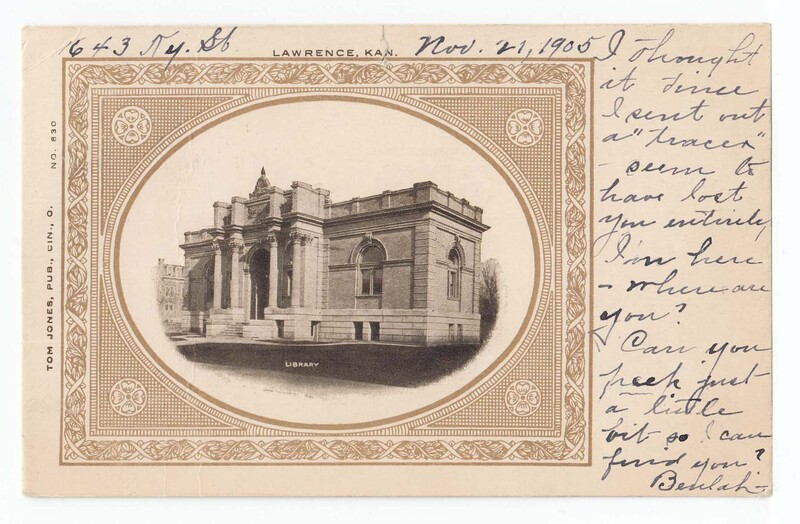 643 Ky. St
LAWRENCE, KAN.
Nov. 21, 1905
NO. 830
TOM JONES, PUB., CIN., O.
LIBRARY
I thought
it time
I sent out
a "tracer"
- seem to
have lost
you entirely
I'm here
- where are
you?
Can you
peek just
a little
bit so I can
find you?
Beulah-